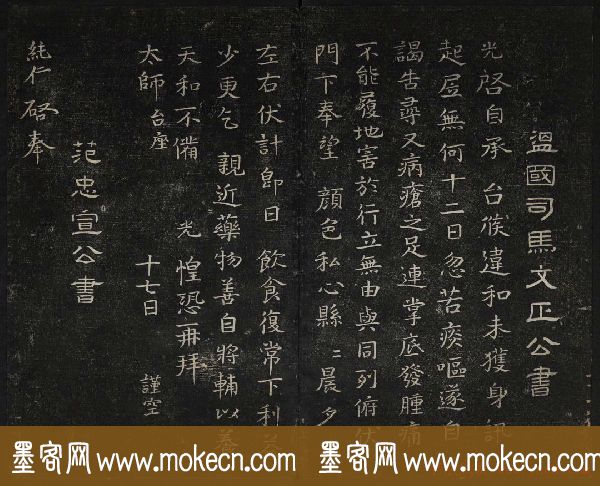 溫國司馬文正公書
光啓自承 台候違和未獲身訊
起居無何十二日忽苦痰嘔遂自
謁告尋又病瘡之足連掌底發腫痛
不能履地害於行立無由與同列俯伏
門下奉望 顏色私心縣〻晨夕
左右伏計即日 飲食復常下利
少更乞 親近藥物善自將輔以
天和不備 光 惶恐再拜
太師 台座 十七日 謹空
范忠宣公書
純仁 啓奉
墨客网 www.mokecn.com 墨客网 www.mokecn.com